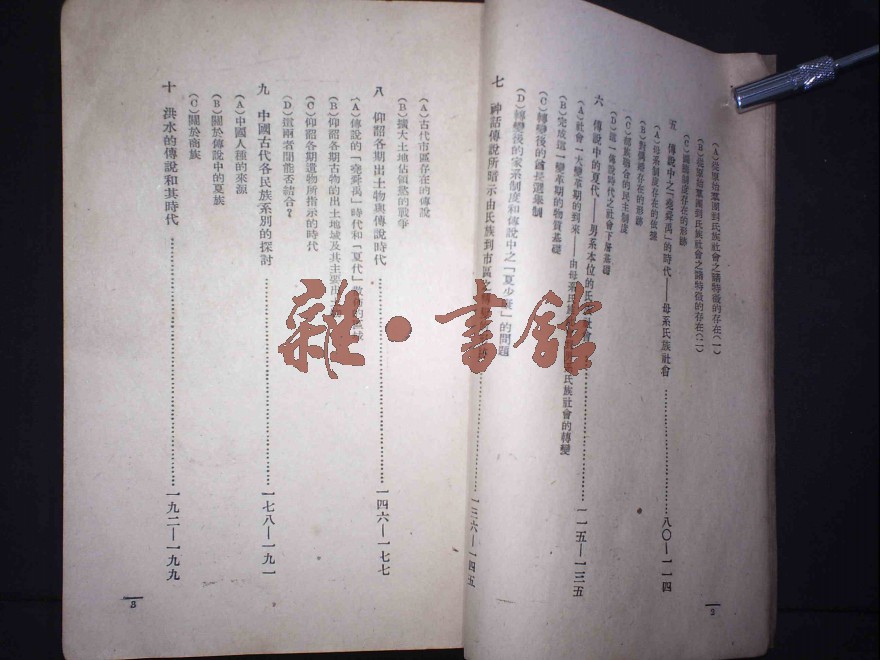 (A)從原始羣團到氏族社會之諸特徵的存在(一)
(B)從原始羣團到氏族社會之諸特徵的存在(二)
(C)圖騰制度存在的形跡
五 傳說中之「堯舜禹」的時代——母系氏族社會…………八〇—一一四
(A)母系制度存在的依據
(B)對偶婚存在的形跡
(C)部族聯合的民主制度
(D)這一傳說時代之社會下層基礎
六 傳說中的夏代——男系本位的氏族社會…………一一五—一三五
(A)社會一大變革期的到來——由母系氏族 氏族社會的轉變
(B)完成這一變革期的物質基礎
(C)轉變後的酋長選舉制
(D)轉變後的家系制度和傳說中之「夏少康」的問題
七 神話傳說所暗示由氏族到市區之…………一三六—一四五
(A)古代市區存在的傳說
(B)擴大土地佔領慾的戰爭
八 仰韶各期出土物與傳說時代…………一四六—一七七
(A)傳說的「堯舜禹」時代和「夏代」
(B)仰韶各期古物的出土地域及其主張
(C)仰韶各期遺物所指示的時代
(D)這兩者間能否諳合?
九 中國古代各民族系別的探討…………一七八—一九一
(A)中國人種的來源
(B)關於傳說中的夏族
(C)關於商族
十 洪水的傳說和其時代…………一九二—一九九
2
3
雜•書館